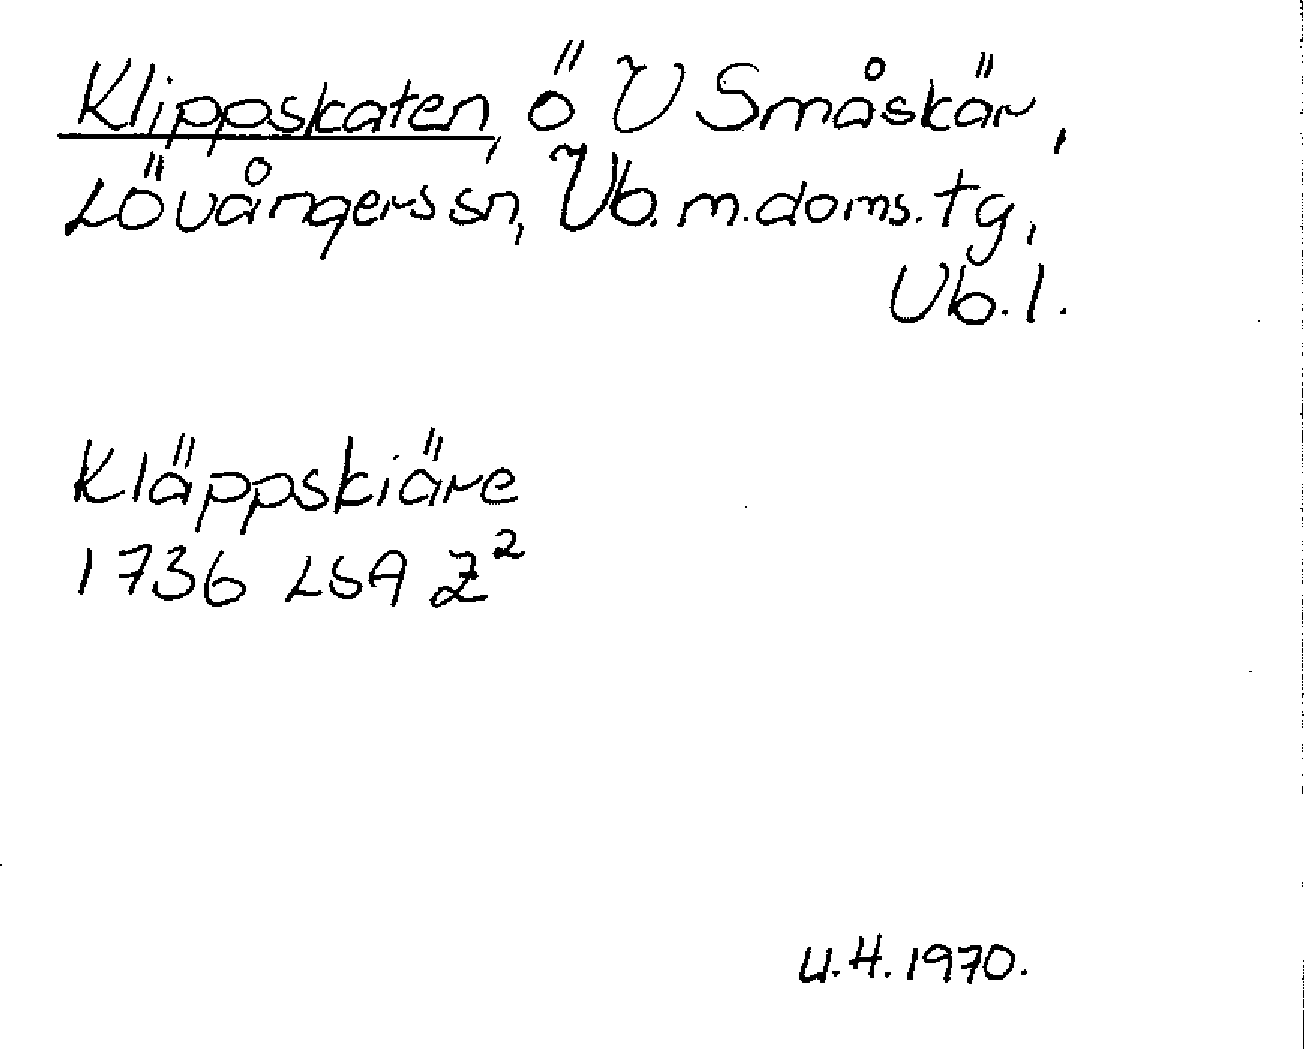 Klippskaten, ö V Småskär,
Lövångers sn, Vb. m. doms. tg,
Vb. l.
Kläppskiäre
1736 LSA Z²
U.H. 1970.